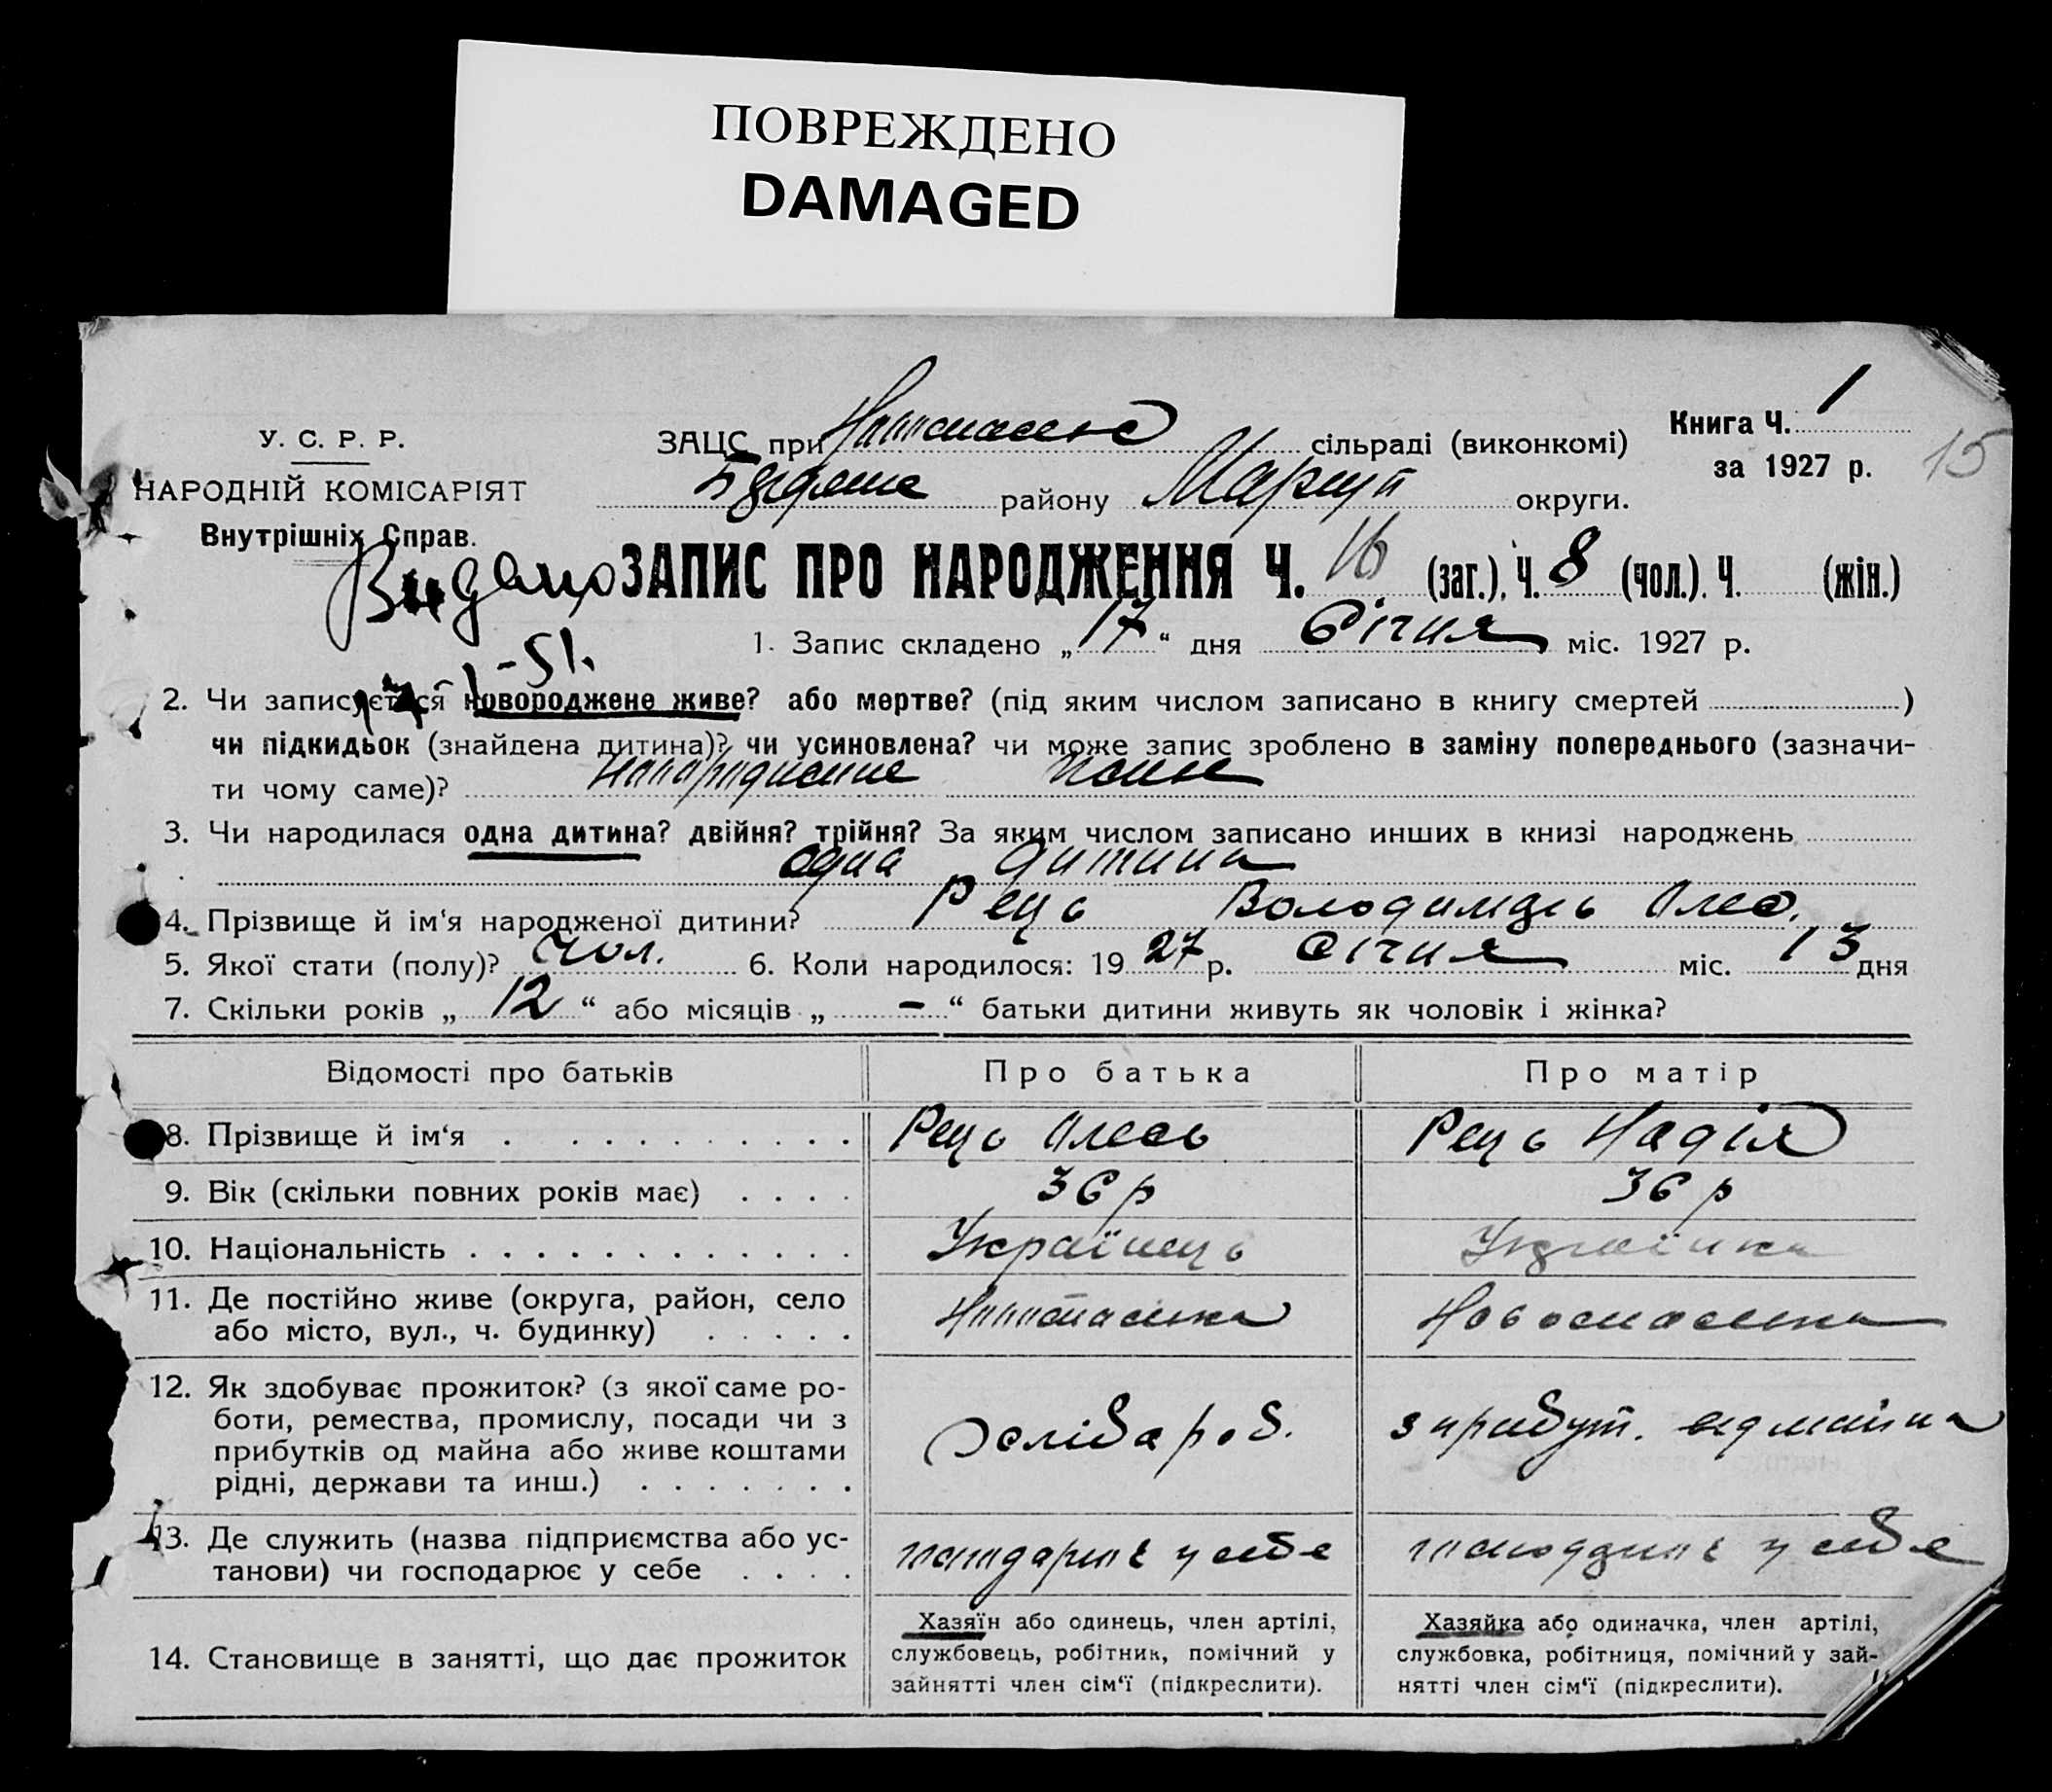 ПОВРЕЖДЕНО
DAMAGED
У. С. Р. Р.
НАРОДНІЙ КОМІСАРІЯТ
Внутрішніх Справ.
ЗАЦС при сільраді (виконкомі)
району Маріуп округи.
Книга Ч. 1
за 1927 р.
15
Видано
17-I-51.
ЗАПИС ПРО НАРОДЖЕННЯ Ч. 16 (заг.), Ч. 8 (чол.). Ч. (жін.)
1. Запис складено „17“ дня Січня міс. 1927 р.
2. Чи записується новороджене живе? або мертве? (під яким числом записано в книгу смертей )
чи підкидьок (знайдена дитина)? чи усиновлена? чи може запис зроблено в заміну попереднього (зазначи-
ти чому саме)?
3. Чи народилася одна дитина? двійня? трійня? За яким числом записано инших в книзі народжень
одна дитина
4. Прізвище й ім‘я народженої дитини? Рець Володимирь Олес.
5. Якої стати (полу)? чол. 6. Коли народилося: 1927 р. Січня міс. 13 дня
7. Скільки років „12“ або місяців „-“ батьки дитини живуть як чоловік і жінка?
Відомості про батьків Про батька Про матір
8. Прізвище й ім‘я Рець Олесь Рець Надія
9. Вік (скільки повних років має) 36 р 36 р
10. Національність Українець Українка
11. Де постійно живе (округа, район, село
або місто, вул., ч. будинку) Новоспаська Новоспаська
12. Як здобуває прожиток? (з якої саме ро-
боти, ремества, промислу, посади чи з
прибутків од майна або живе коштами
рідні, держави та инш.) хлібароб. з прибут. від майна
13. Де служить (назва підприємства або ус-
танови) чи господарює у себе господарює у себе господарює у себе
14. Становище в занятті, що дає прожиток
Хазяїн або одинець, член артілі,
службовець, робітник, помічний у
зайнятті член сім‘ї (підкреслити).
Хазяйка або одиначка, член артілі,
службовка, робітниця, помічний у зай-
нятті член сім‘ї (підкреслити).